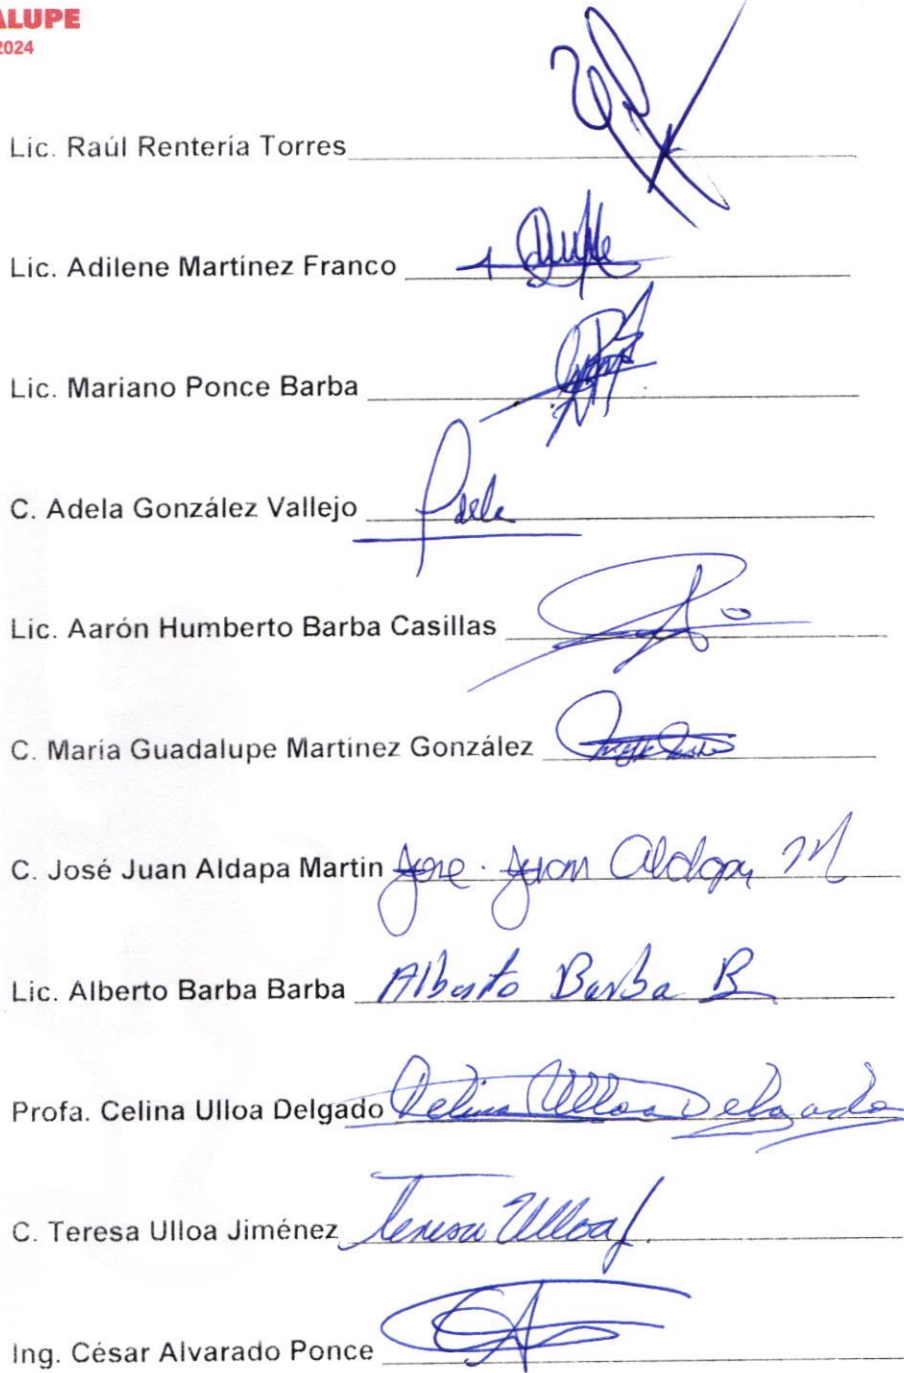 ALUPE
2024
Lic. Raúl Rentería Torres
Lic. Adilene Martínez Franco
Lic. Mariano Ponce Barba
C. Adela González Vallejo Adela
Lic. Aarón Humberto Barba Casillas
C. María Guadalupe Martínez González
C. José Juan Aldapa Martin Jose Juan Aldapa M
Lic. Alberto Barba Barba Alberto Barba B
Profa. Celina Ulloa Delgado Celina Ulloa Delgado
C. Teresa Ulloa Jiménez Teresa Ulloa J.
Ing. César Alvarado Ponce